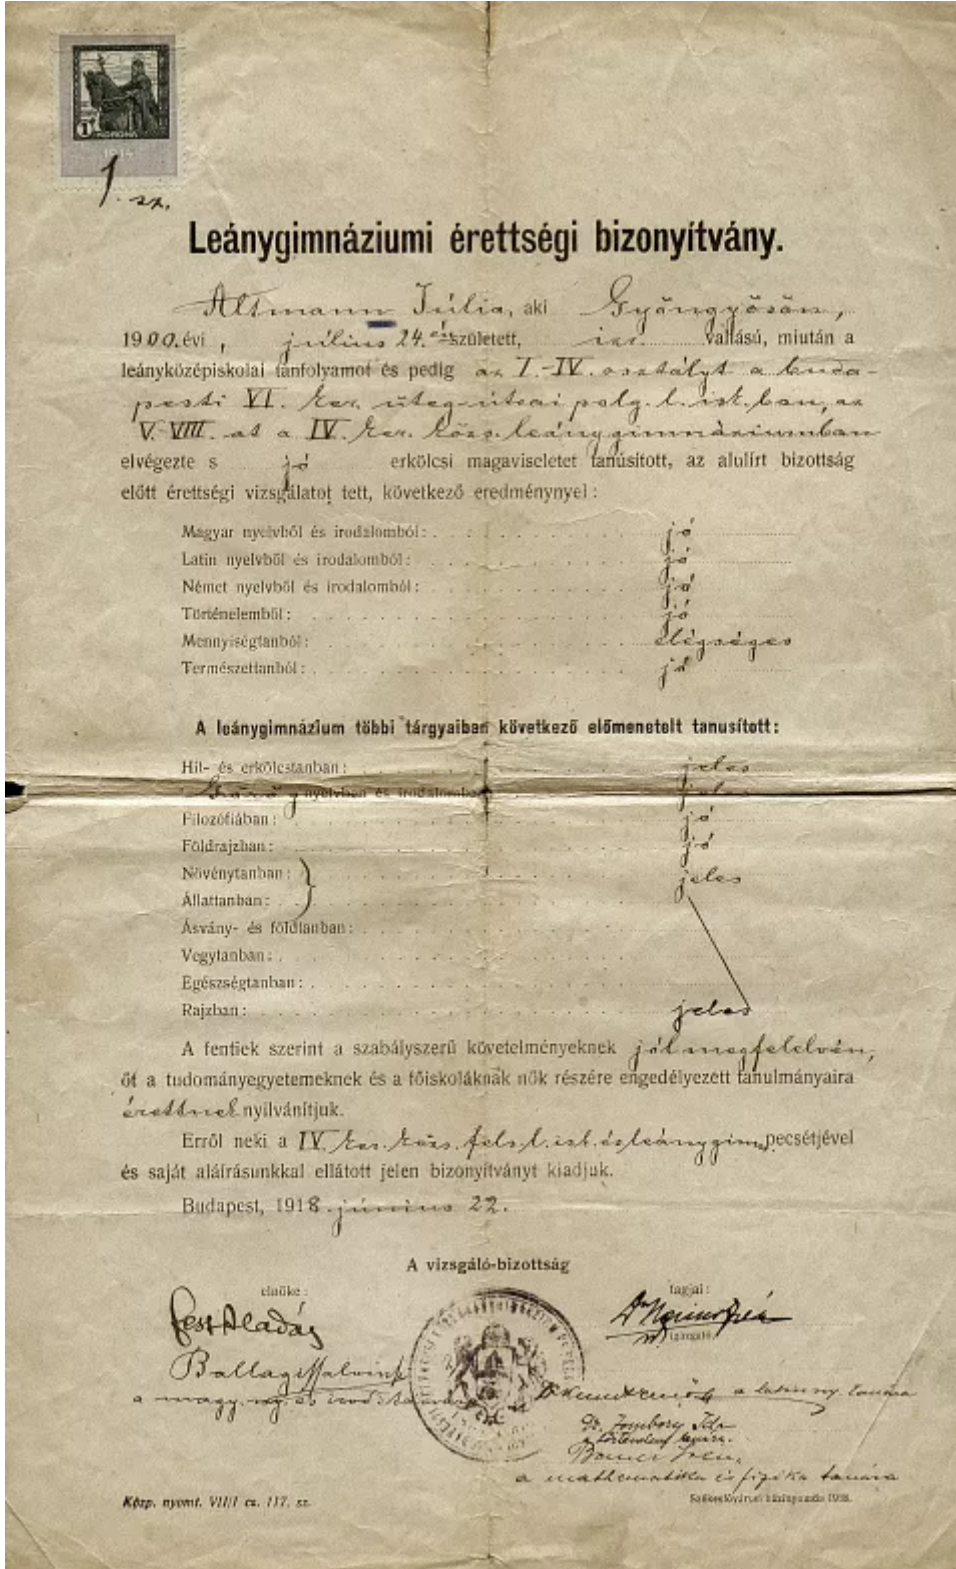 1
KORONA
1914
1. sz.
Leánygimnáziumi érettségi bizonyítvány.
Altmann Júlia, aki Gyöngyösön,
1900. évi, július 24.-én született, izr. vallású, miután a
leányközépiskolai tanfolyamot és pedig az I.-IV. osztályt a buda-
pesti VI. ker. üteg-utcai polg. l. isk.ban, az
V.-VIII.-at a IV. ker. közs. leánygimnáziumban
elvégezte s jó erkölcsi magaviseletet tanúsított, az alulírt bizottság
előtt érettségi vizsgálatot tett, következő eredménynyel:
Magyar nyelvből és irodalomból: jó
Latin nyelvből és irodalomból: jó
Német nyelvből és irodalomból: jó
Történelemből: jó
Mennyiségtanból: elégséges
Természettanból: jó
A leánygimnázium többi tárgyaiban következő előmenetelt tanusított:
Hit- és erkölcstanban: jeles
Görög nyelvben és irodalomban jeles
Filozófiában: jó
Földrajzban: jó
Növénytanban: jeles
Állattanban:
Ásvány- és földtanban:
Vegytanban:
Egészségtanban:
Rajzban: jeles
A fentiek szerint a szabályszerű követelményeknek jól megfelelvén,
őt a tudományegyetemeknek és a főiskoláknak nők részére engedélyezett tanulmányaira
érettnek nyilvánítjuk.
Erről neki a IV. ker. közs. fels. l. isk. és leánygim. pecsétjével
és saját aláírásunkkal ellátott jelen bizonyítványt kiadjuk.
Budapest, 1918. június 22.
A vizsgáló-bizottság
elnöke: tagjai:
Fest Aladár
igazgató.
Ballagi
a magy. ny. és irod. tanára
a latin ny. tanára
Dr. Zombory Ida
a történelem tanára.
Irén,
a mathematika és fizika tanára
Közp. nyomt. VII/I cs. 117. sz. Székesfővárosi házinyomda 1918.